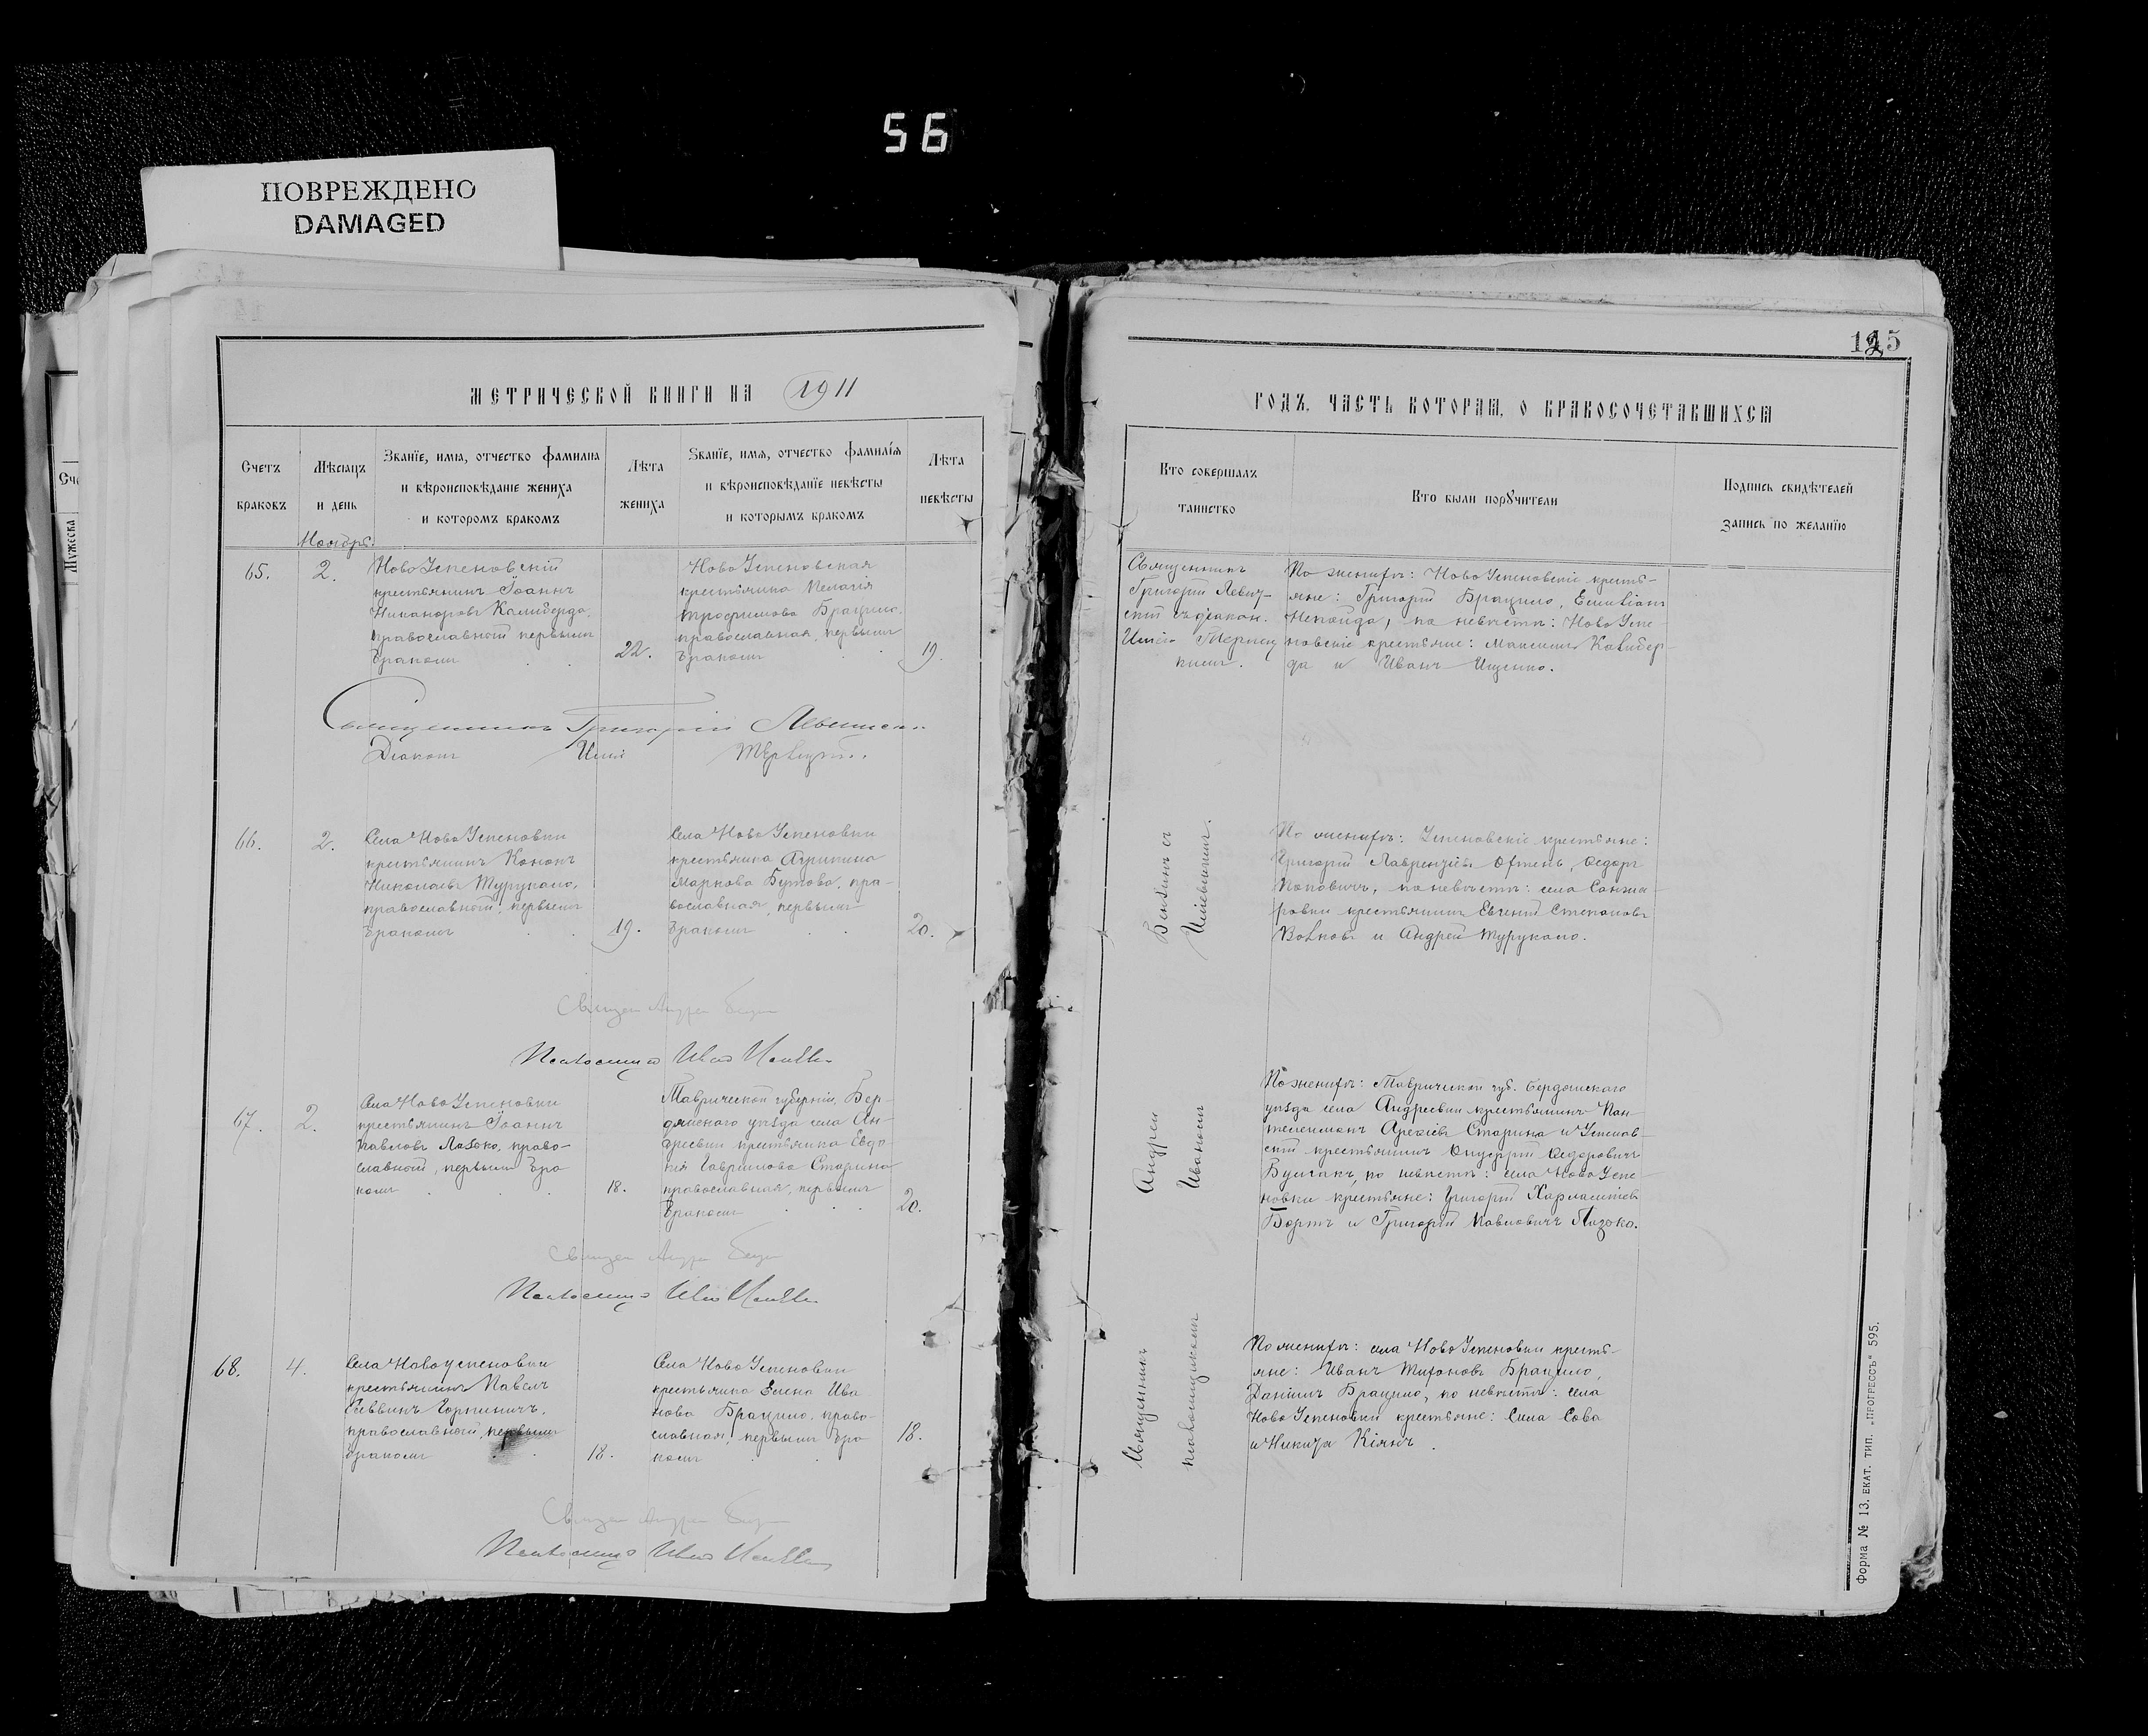 56
ПОВРЕЖДЕНО
DAMAGED
125
МЕТРИЧЕСКОЙ КНИГИ НА 1911
ГОДЪ, ЧАСТЬ ВТОРАЯ, О БРАКОСОЧЕТАВШИХСЯ
Счетъ браковъ
Мѣсяцъ и день
Званїе, имя, отчество фамилия
и вѣроисповѣданіе жениха
и которомъ бракомъ
Лѣта жениха
Званїе, имя, отчество фамилїя
и вѣроисповѣданїе невѣсты
и которымъ бракомъ
Лѣта невѣсты
Кто совершалъ
таинство
Кто были поручители
Подпись свидѣтелей
запись по желанїю
Ноябрь.
65.
2.
НовоУспеновскій
крестьянинъ Іоаннъ
Никаноровъ Калиберда,
православный первымъ
бракомъ
22.
НовоУспеновская
крестьянка Пелагія
Трофимова Брацило,
православная, первымъ
бракомъ
19.
Священникъ
Григорій Левиц-
кій съ діакон.
По женихѣ: НовоУспеновскіе кресть-
яне: Григорій Брацило, Емиліанъ
по невѣстѣ: НовоУспе-
новскіе крестьяне: Максимъ Калибер-
да и Иванъ Ищенко.
Священникъ Григорій Левицкій
Діаконъ
66.
2.
Села НовоУспеновки
крестьянинъ Кононъ
Николаевъ Турукало,
православный, первымъ
бракомъ
19.
Села НовоУспеновки
крестьянка Агрипина
Маркова Бутова, пра-
вославная, первымъ
бракомъ
20.
По женихѣ: Успеновскіе крестьяне:
Григорій Лаврентіевъ Федоръ
Поповичъ, по невѣстѣ: села Санжа-
ровки крестьянинъ Евгеній Степановъ
Волковъ и Андрей Турукало.
Псаломщикъ Иванъ
67.
2.
Села НовоУспеновки
крестьянинъ Іоаннъ
Павловъ Лазоко, право-
славный, первымъ бра
комъ
18.
Таврической губерніи, Бер-
дянскаго уѣзда села Ан-
дреевки крестьянка Евдо-
кія Гавриилова Старина
православная, первымъ
бракомъ
20.
По женихѣ: Таврической губ. Бердянскаго
уѣзда села Андреевки крестьянинъ Пан-
телеимонъ Старина и Успенов-
скій крестьянинъ Онуфрій Федоровичъ
по невѣстѣ: села НовоУспе-
новки крестьяне: Григорій Харлампіевъ
Бортъ и Григорій Павловичъ Лазоко.
Псаломщикъ Иванъ
68.
4.
Села Новоуспеновки
крестьянинъ Павелъ
Саввинъ Горпиничъ,
православный, первымъ
бракомъ
18.
Села НовоУспеновки
крестьянка Елена Ива
нова Брацило, право-
славная, первымъ бра
комъ
18.
По женихѣ: села НовоУспеновки кресть-
яне: Иванъ Брацило,
Даніилъ Брацило, по невѣстѣ: села
НовоУспеновки крестьяне: Сила Сова
и Никита Кіянъ.
Псаломщикъ Иванъ
Священникъ Андрей
псаломщикомъ Иваномъ
Форма № 13. ЕКАТ. ТИП. „ПРОГРЕССЪ" 595.